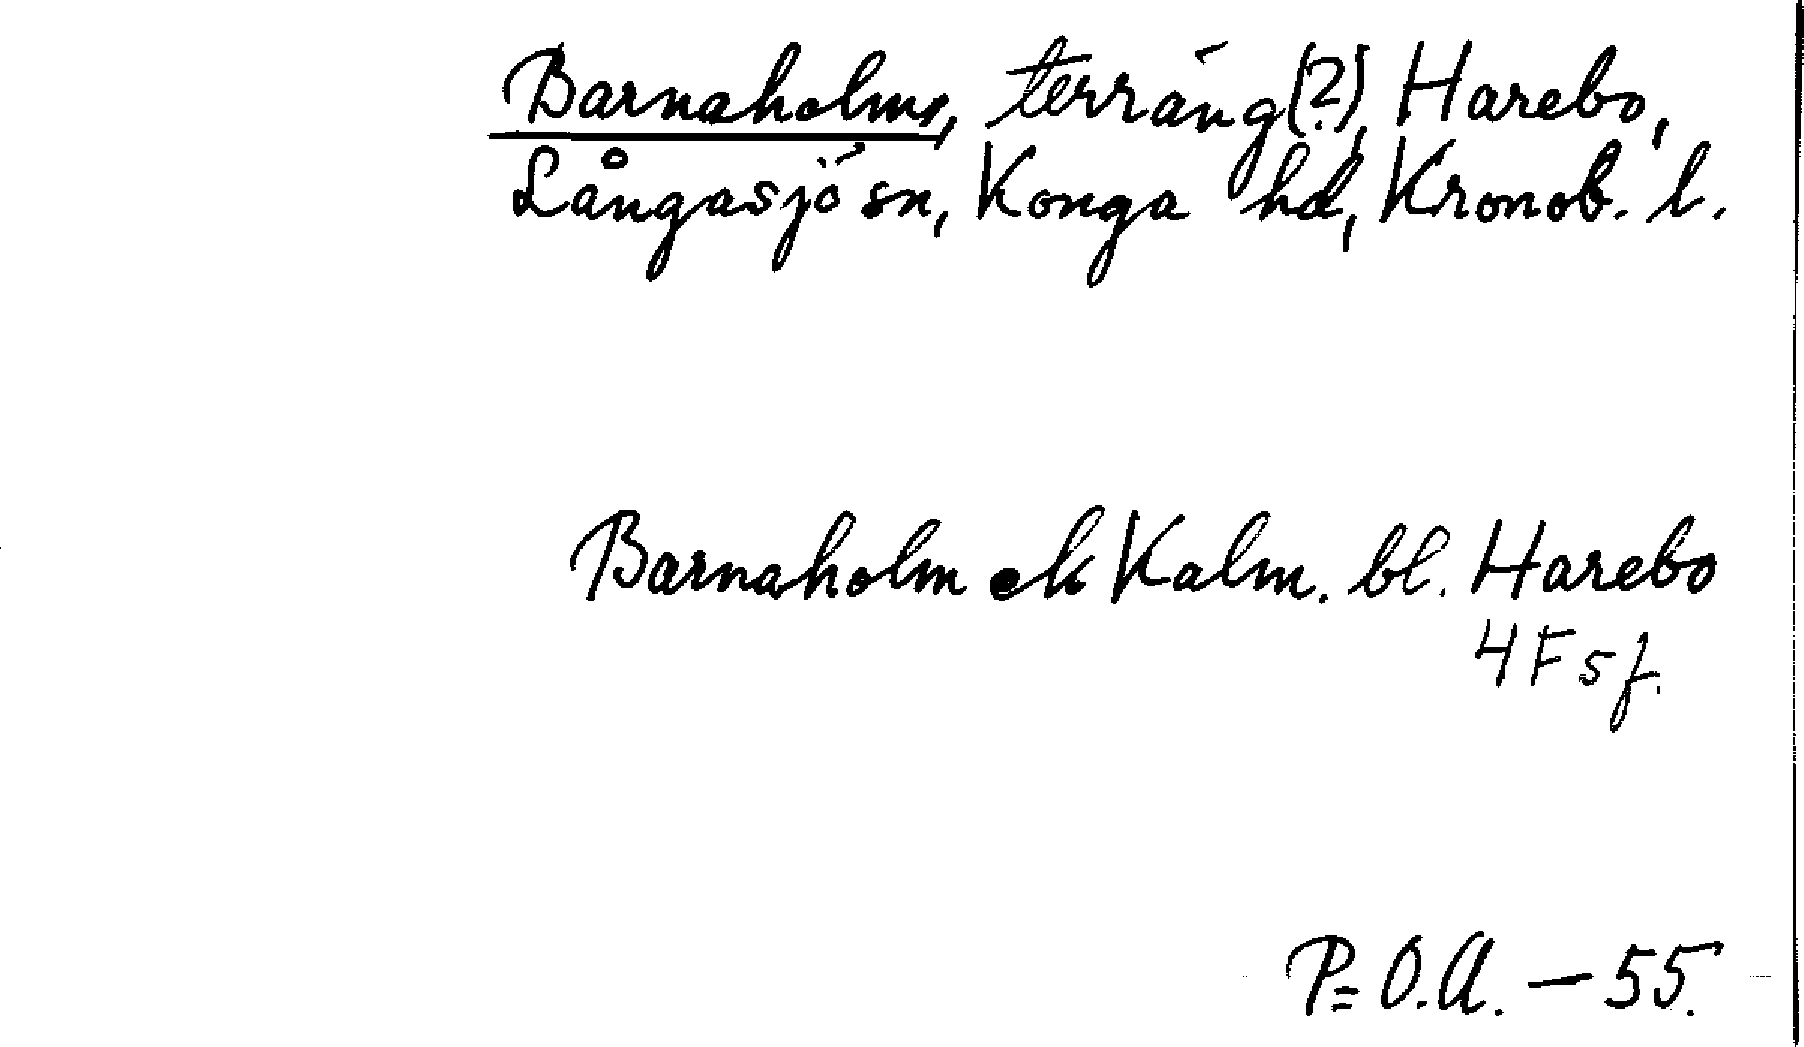 Barnaholm, terräng(?), Harebo,
Långasjö sn, Konga hd, Kronob. l.
Barnaholm ek Kalm. bl. Harebo
4 F 5 f.
P=O.A. – 55.